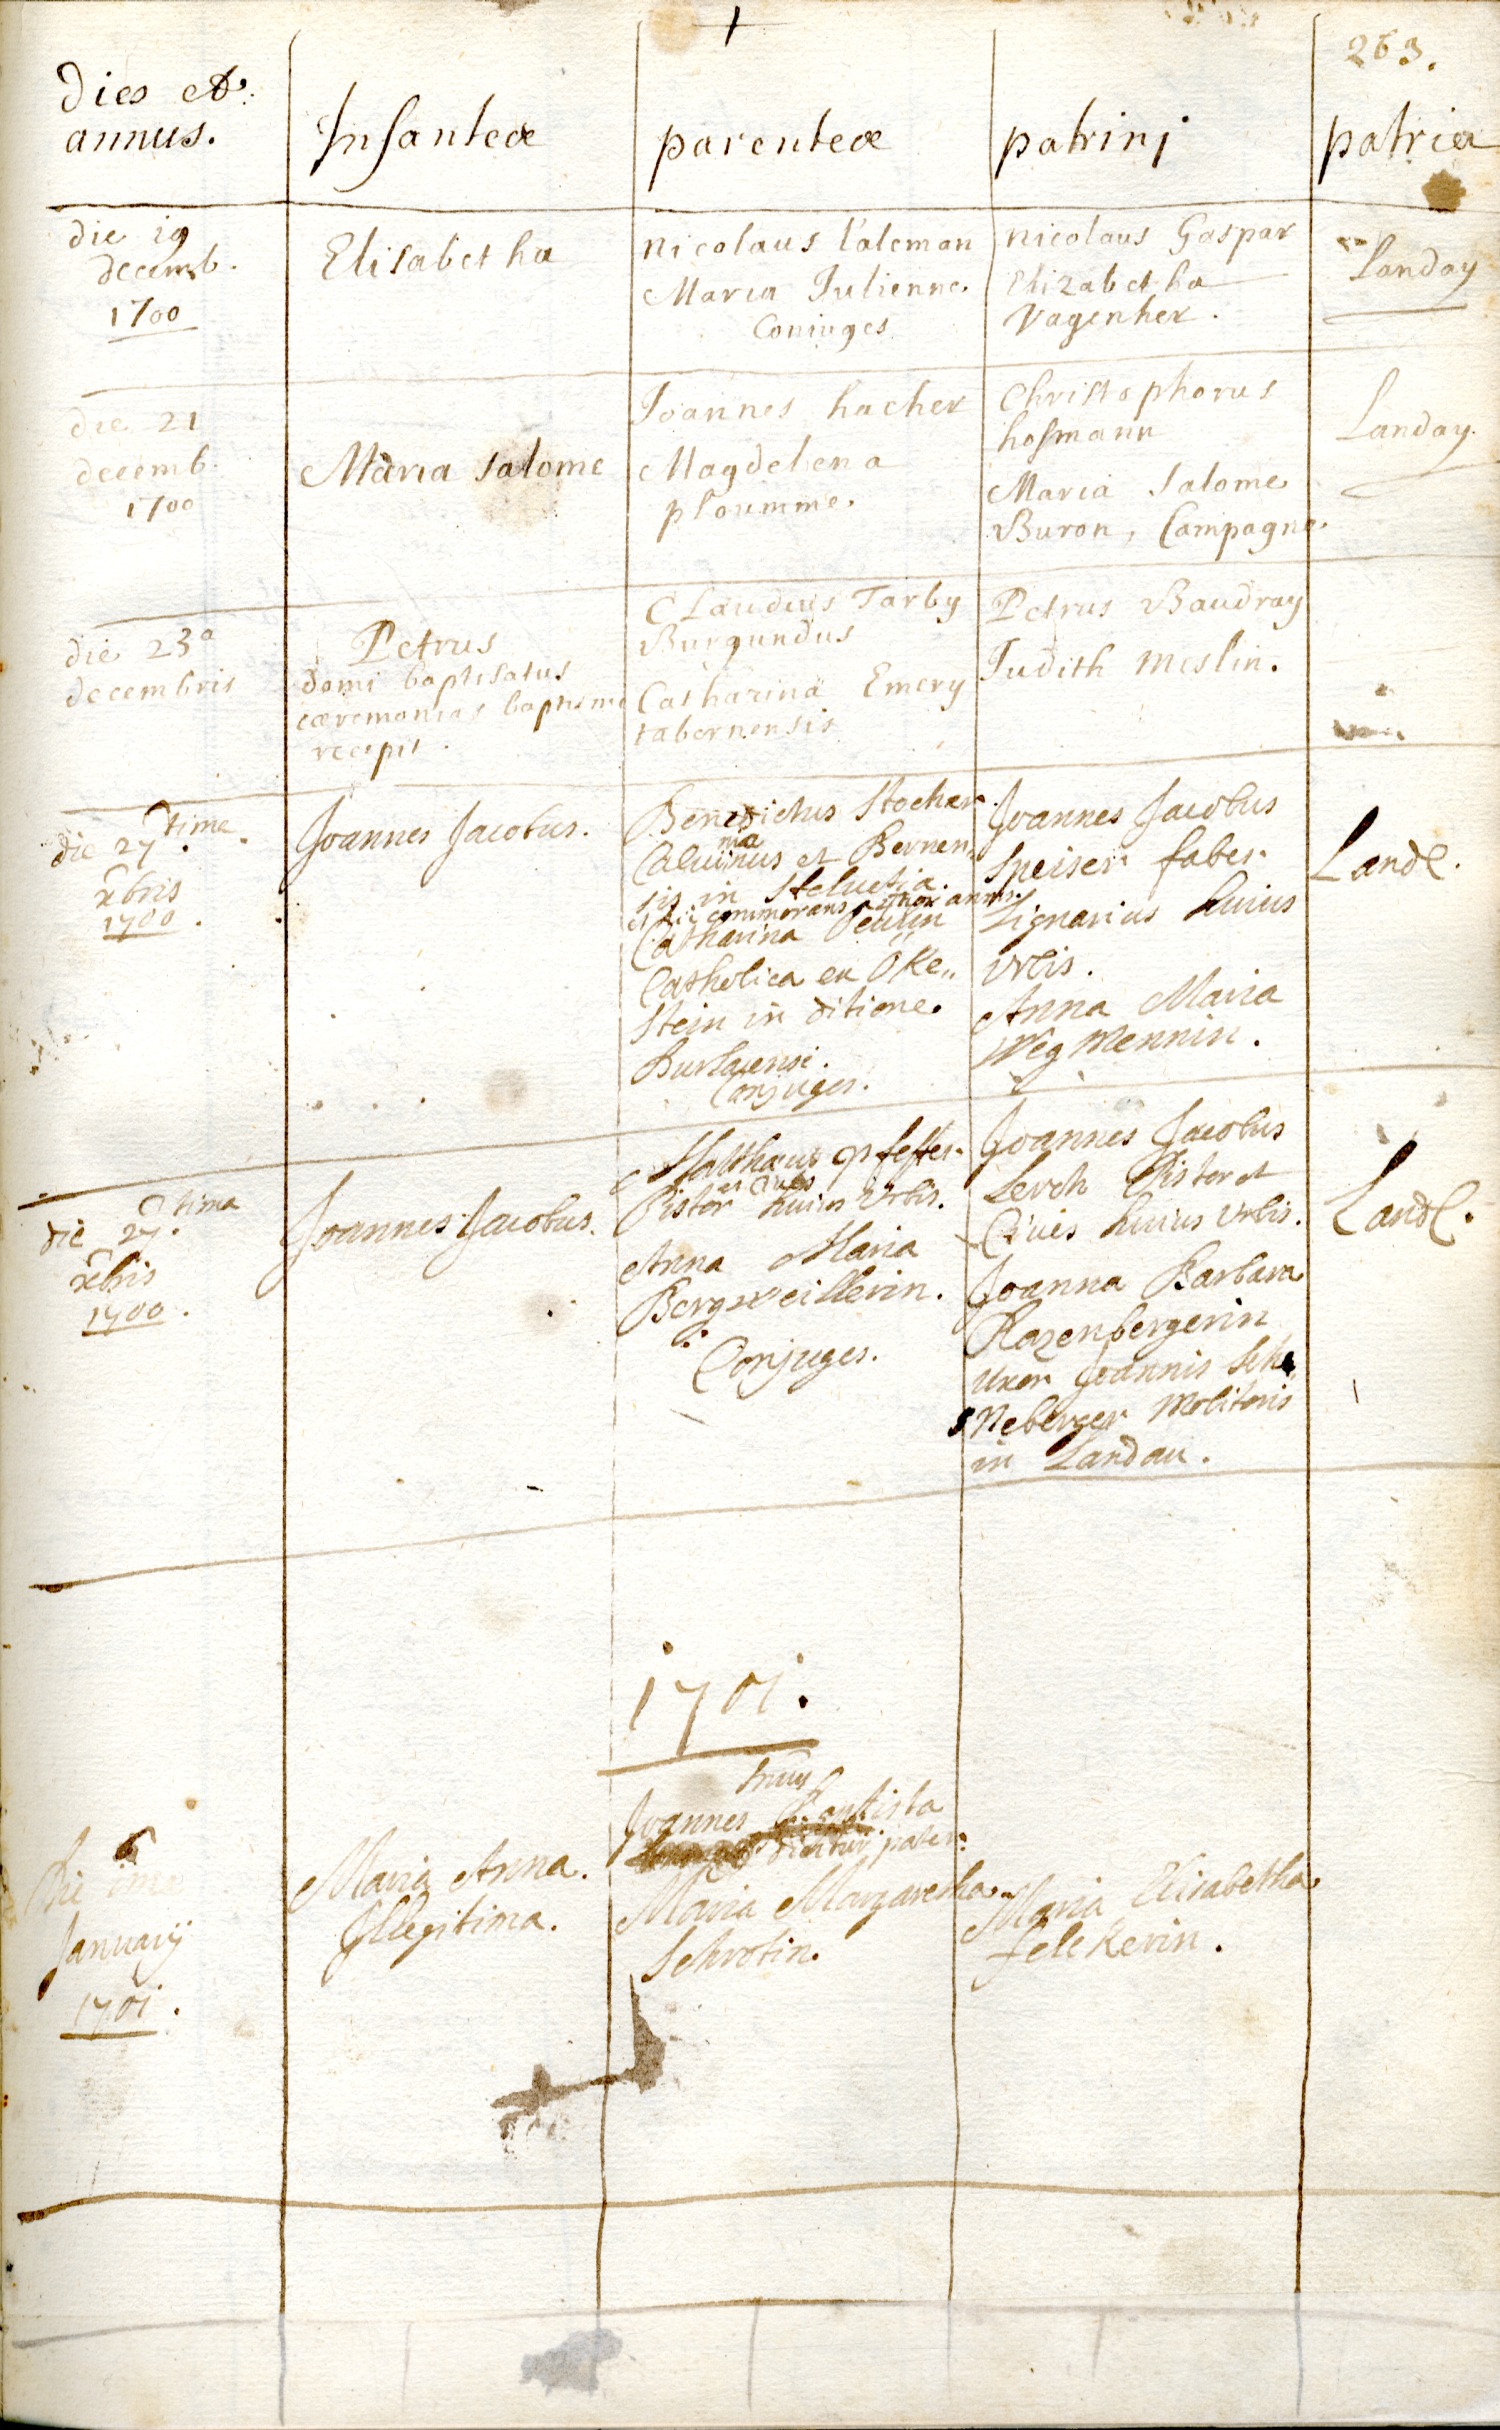 263.
dies et
annus.
Infantes
parentes
patrinj
patria
die 19
decemb.
1700
Elisabetha
Nicolaus l'aleman
Maria Julienne
Coniuges
Nicolaus Gaspar
Elizabetha
Vagenher.
Landay
die 21
decemb.
1700
Maria Salome
Joannes hacher
Magdelena
ploumme.
Christophorus
hofmann
Maria Salome
Buron, Campagne.
Landay.
die 23a
decembris
Petrus
domi baptisatus
cæremonias baptismi
recepit.
Claudius Tarby
Burgundus
Catharina Emery
tabernensis
Petrus Baudray
Judith Meslin.
die 27 time.
xbris
1700.
Joannes Jacobus.
Benedictus Stocher
Calvinus et Bernen
sis in Helvetia.
et hic commorans annis.
Catharina
Catholica ex Öke„
stein in ditione
Conjuges.
Joannes Jacobus
Speiser faber
Lignarius huius
Urbis.
Anna Maria
Weg Mennin.
Land.
die 27. tima
xbris
1700.
Joannes Jacobus.
Matthæus Pfeffer
Pister et Civis huius Urbis.
Anna Maria
Bergweillerin.
Conjuges.
Joannes Jacobus
Lerch Pister et
Civis huius Urbis.
Joanna Barbara
Razenbergerin
Uxor Joannis
Neberger Molitoris
in Landau.
Land.
1701.
Die
January
1701.
Maria Anna.
Illegitima.
Joannes Baptista
dicitur pater.
Maria Margaretha
Schrotin.
Maria Elisabetha
felckerin.